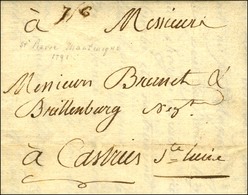 à Messieurs
St Pierre Martinique
Messieurs Brunet &
Brillenburg Negt
à Castries Ste Lucie